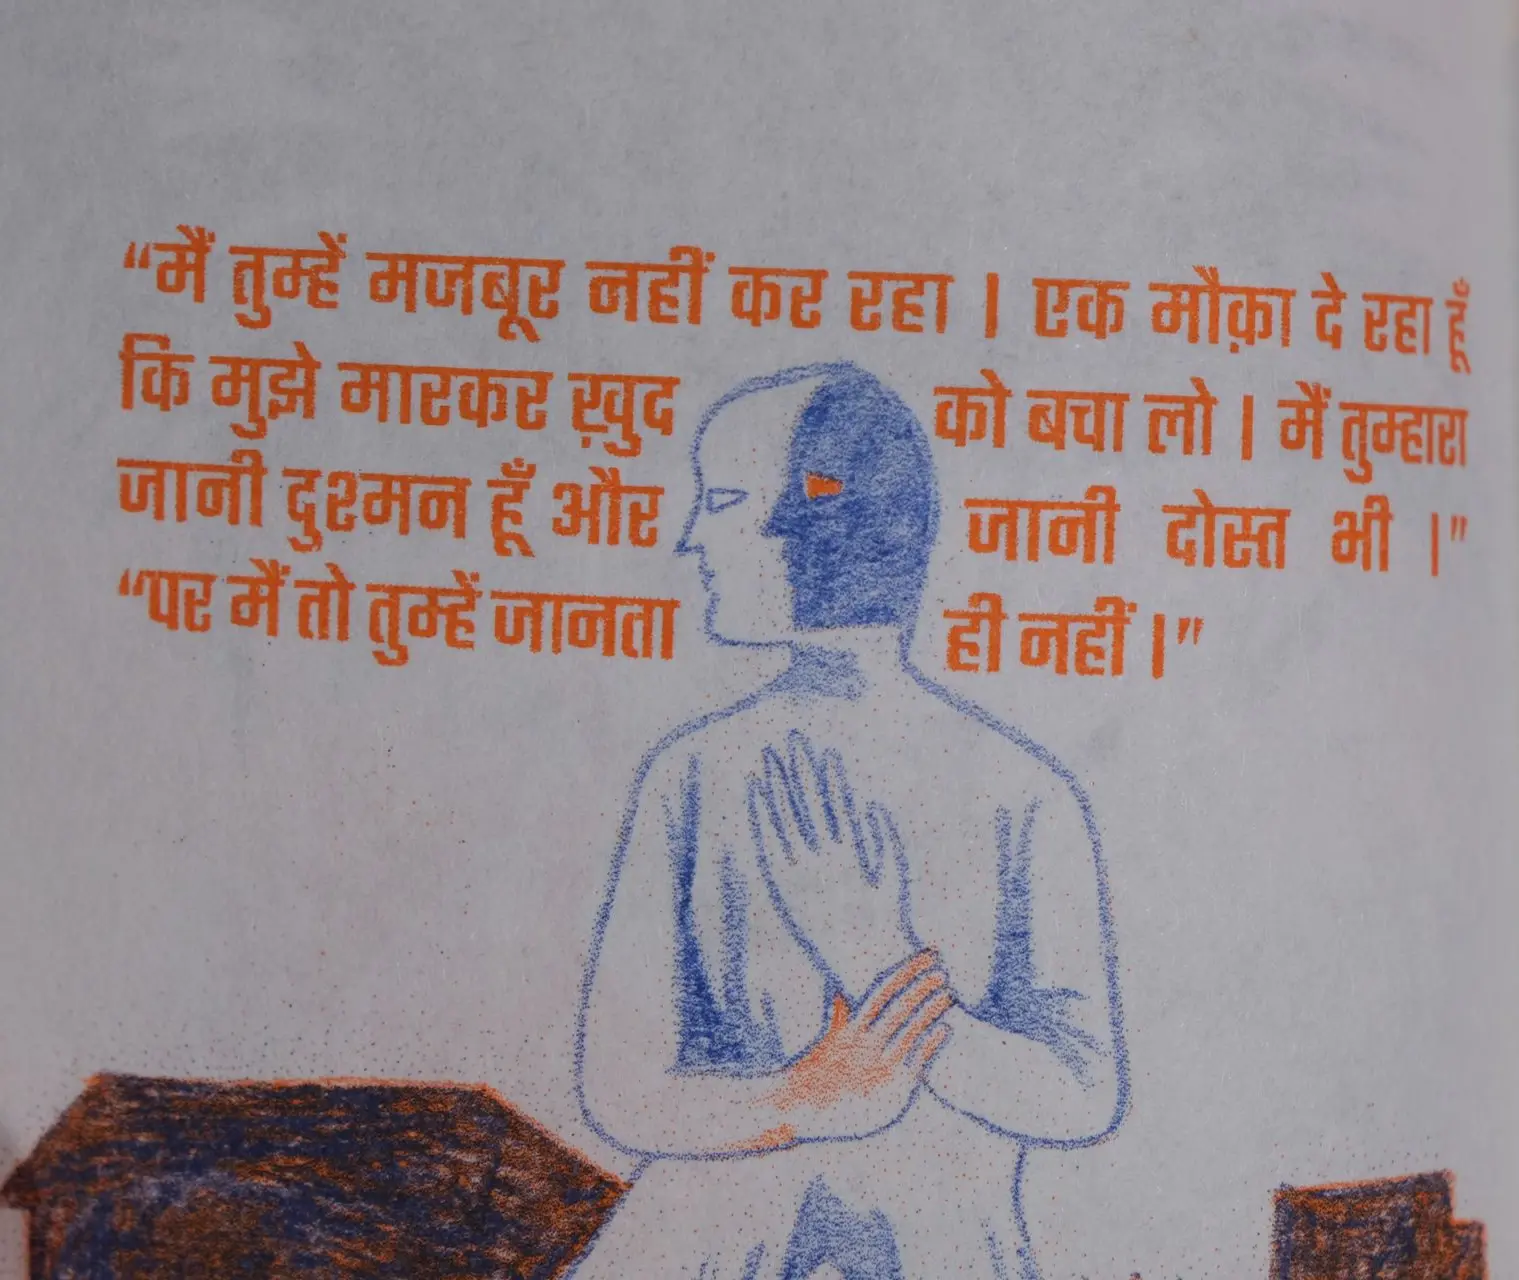 “मैं तुम्हें मजबूर नहीं कर रहा । एक मौक़ा दे रहा हूँ
कि मुझे मारकर ख़ुद को बचा लो । मैं तुम्हारा
जानी दुश्मन हूँ और जानी दोस्त भी ।”
“पर मैं तो तुम्हें जानता ही नहीं ।”